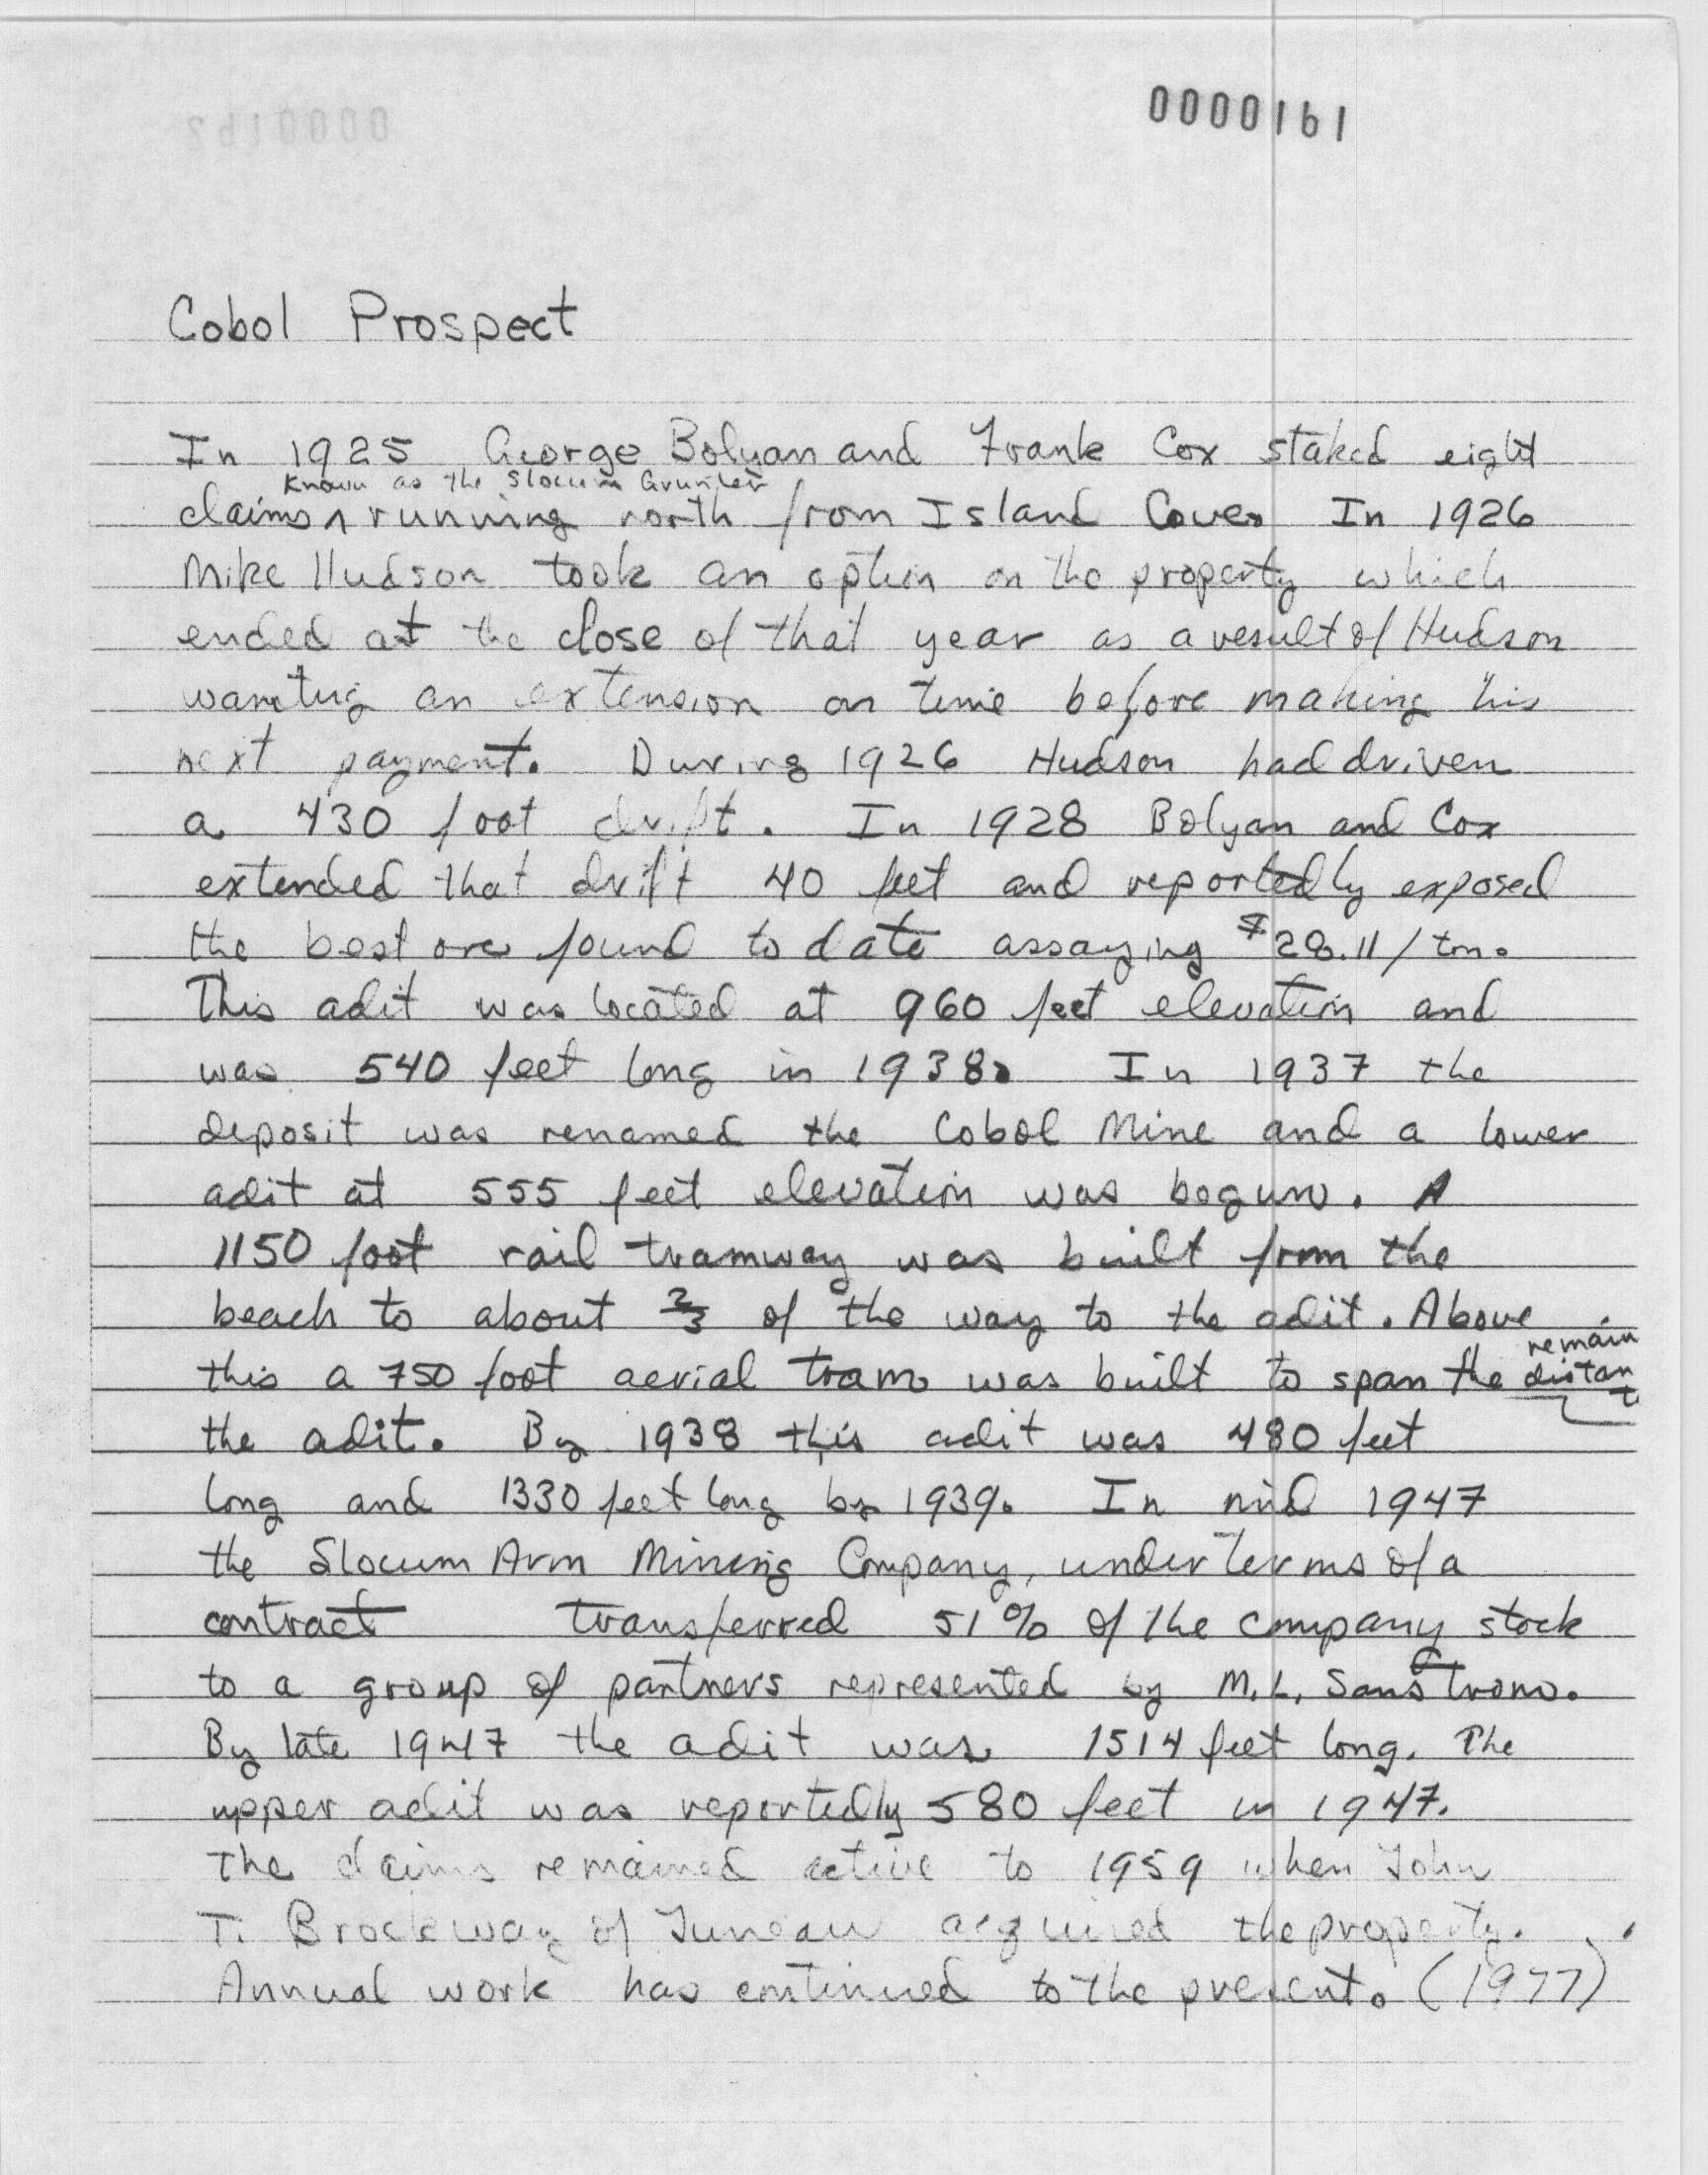 0000161
0000162
Cobol Prospect
In 1925 George Bolyan and Frank Cox staked eight
Known as the Slocum
claims ^ running north from Island Cove. In 1926
Mike Hudson took an option on the property which
ended at the close of that year as a result of Hudson
wanting an extension on time before making his
next payment. During 1926 Hudson had driven
a 430 foot drift. In 1928 Bolyan and Cox
extended that drift 40 feet and reportedly exposed
the best ore found to date assaying $28.11/ton.
This adit was located at 960 feet elevation and
was 540 feet long in 1938. In 1937 the
deposit was renamed the Cobol Mine and a lower
adit at 555 feet elevation was begun. A
1150 foot rail tramway was built from the
beach to about 2/3 of the way to the adit. Above
remain
this a 750 foot aerial tram was built to span the distan
the adit. By 1938 this adit was 480 feet
long and 1330 feet long by 1939. In mid 1947
the Slocum Arm Mining Company, under terms of a
contract transferred 51% of the company stock
to a group of partners represented by M.L.
By late 1947 the adit was 1514 feet long. The
upper adit was reportedly 580 feet in 1947.
The claims remained active to 1959 when John
T. Brockway of Juneau acquired the property.
Annual work has continued to the present. (1977)